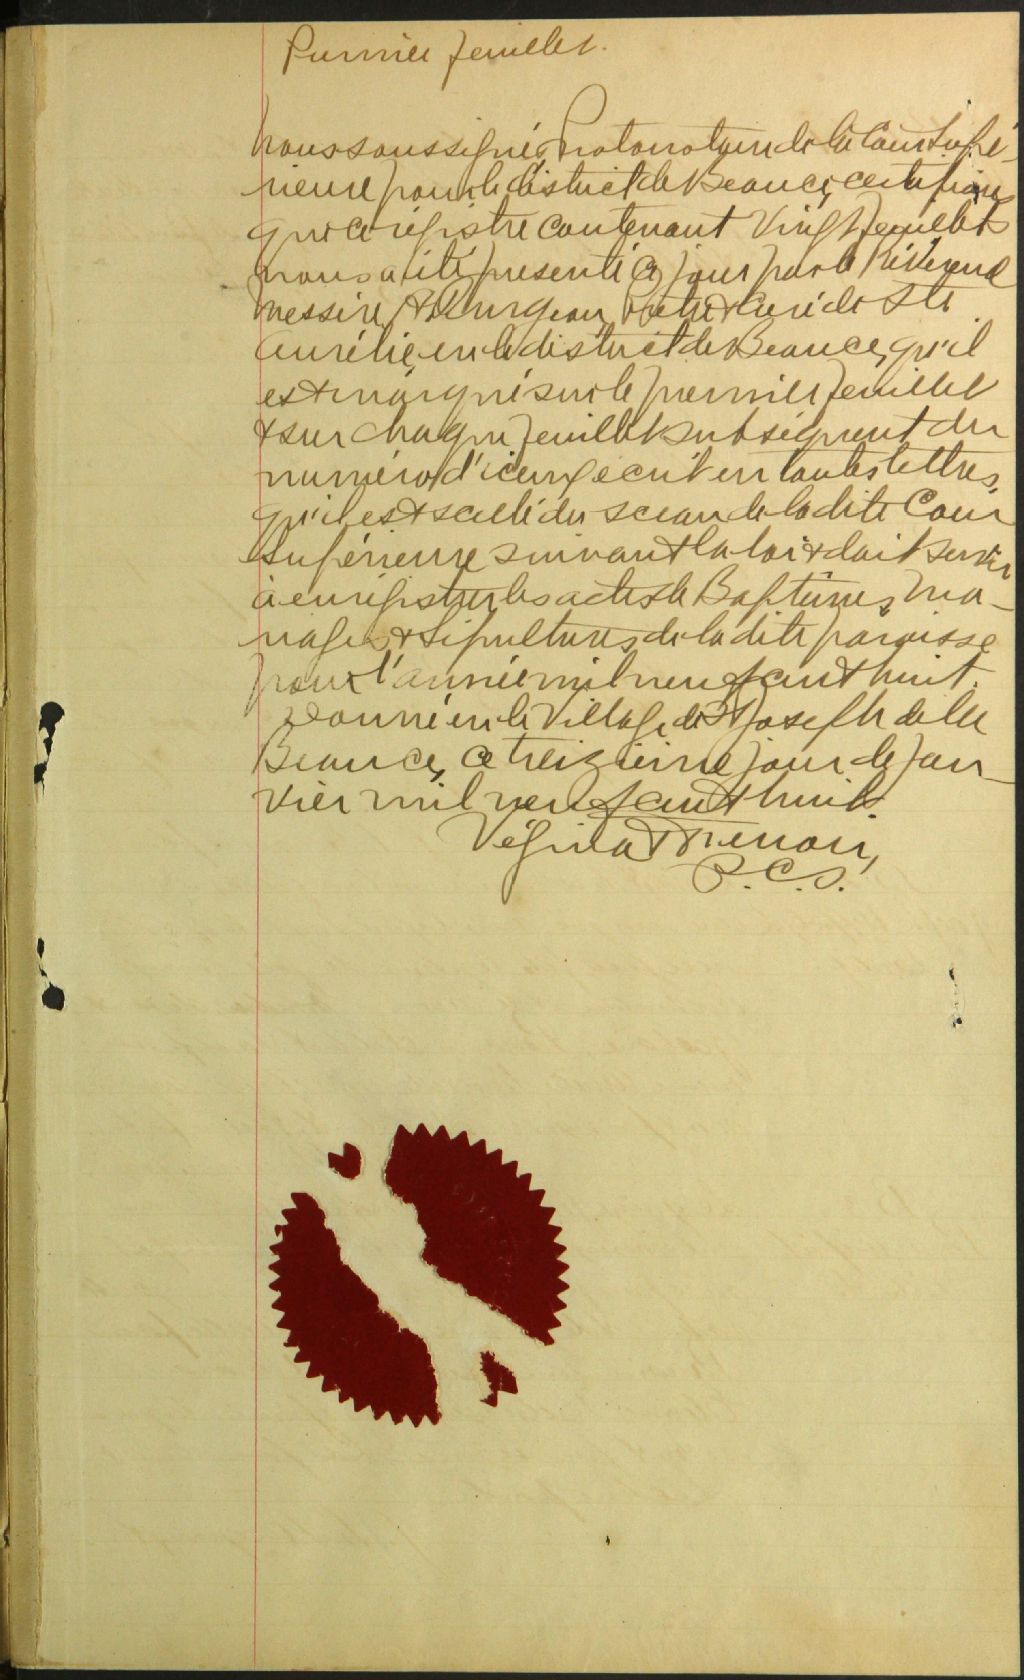 Premier feuillet.
Nous soussignés, Protonotaire de la Cour Supé-
rieure pour le district de Beauce, certifions
que ce régistre contenant Vingt feuillets
nous a été présenté ce jour par le Révérend
Messire Ptre & Curé de Ste
Aurélie, en le district de Beauce, qu'il
est marqué sur le premier feuillet
& sur chaque feuillet subséquent du
numéro d'iceux écrit en toutes lettres,
qu'il est scellé du sceau de la dite Cour
Supérieure suivant la loi & doit servir
à enrégistrer les actes de Baptêmes, Ma-
riages & Sépultures de la dite paroisse
pour l'année mil neuf cent huit.
Donné en le Village de St Joseph de la
Beauce, ce treizième jour de Jan-
vier mil neuf cent huit.
Vézina &
P.C.S.